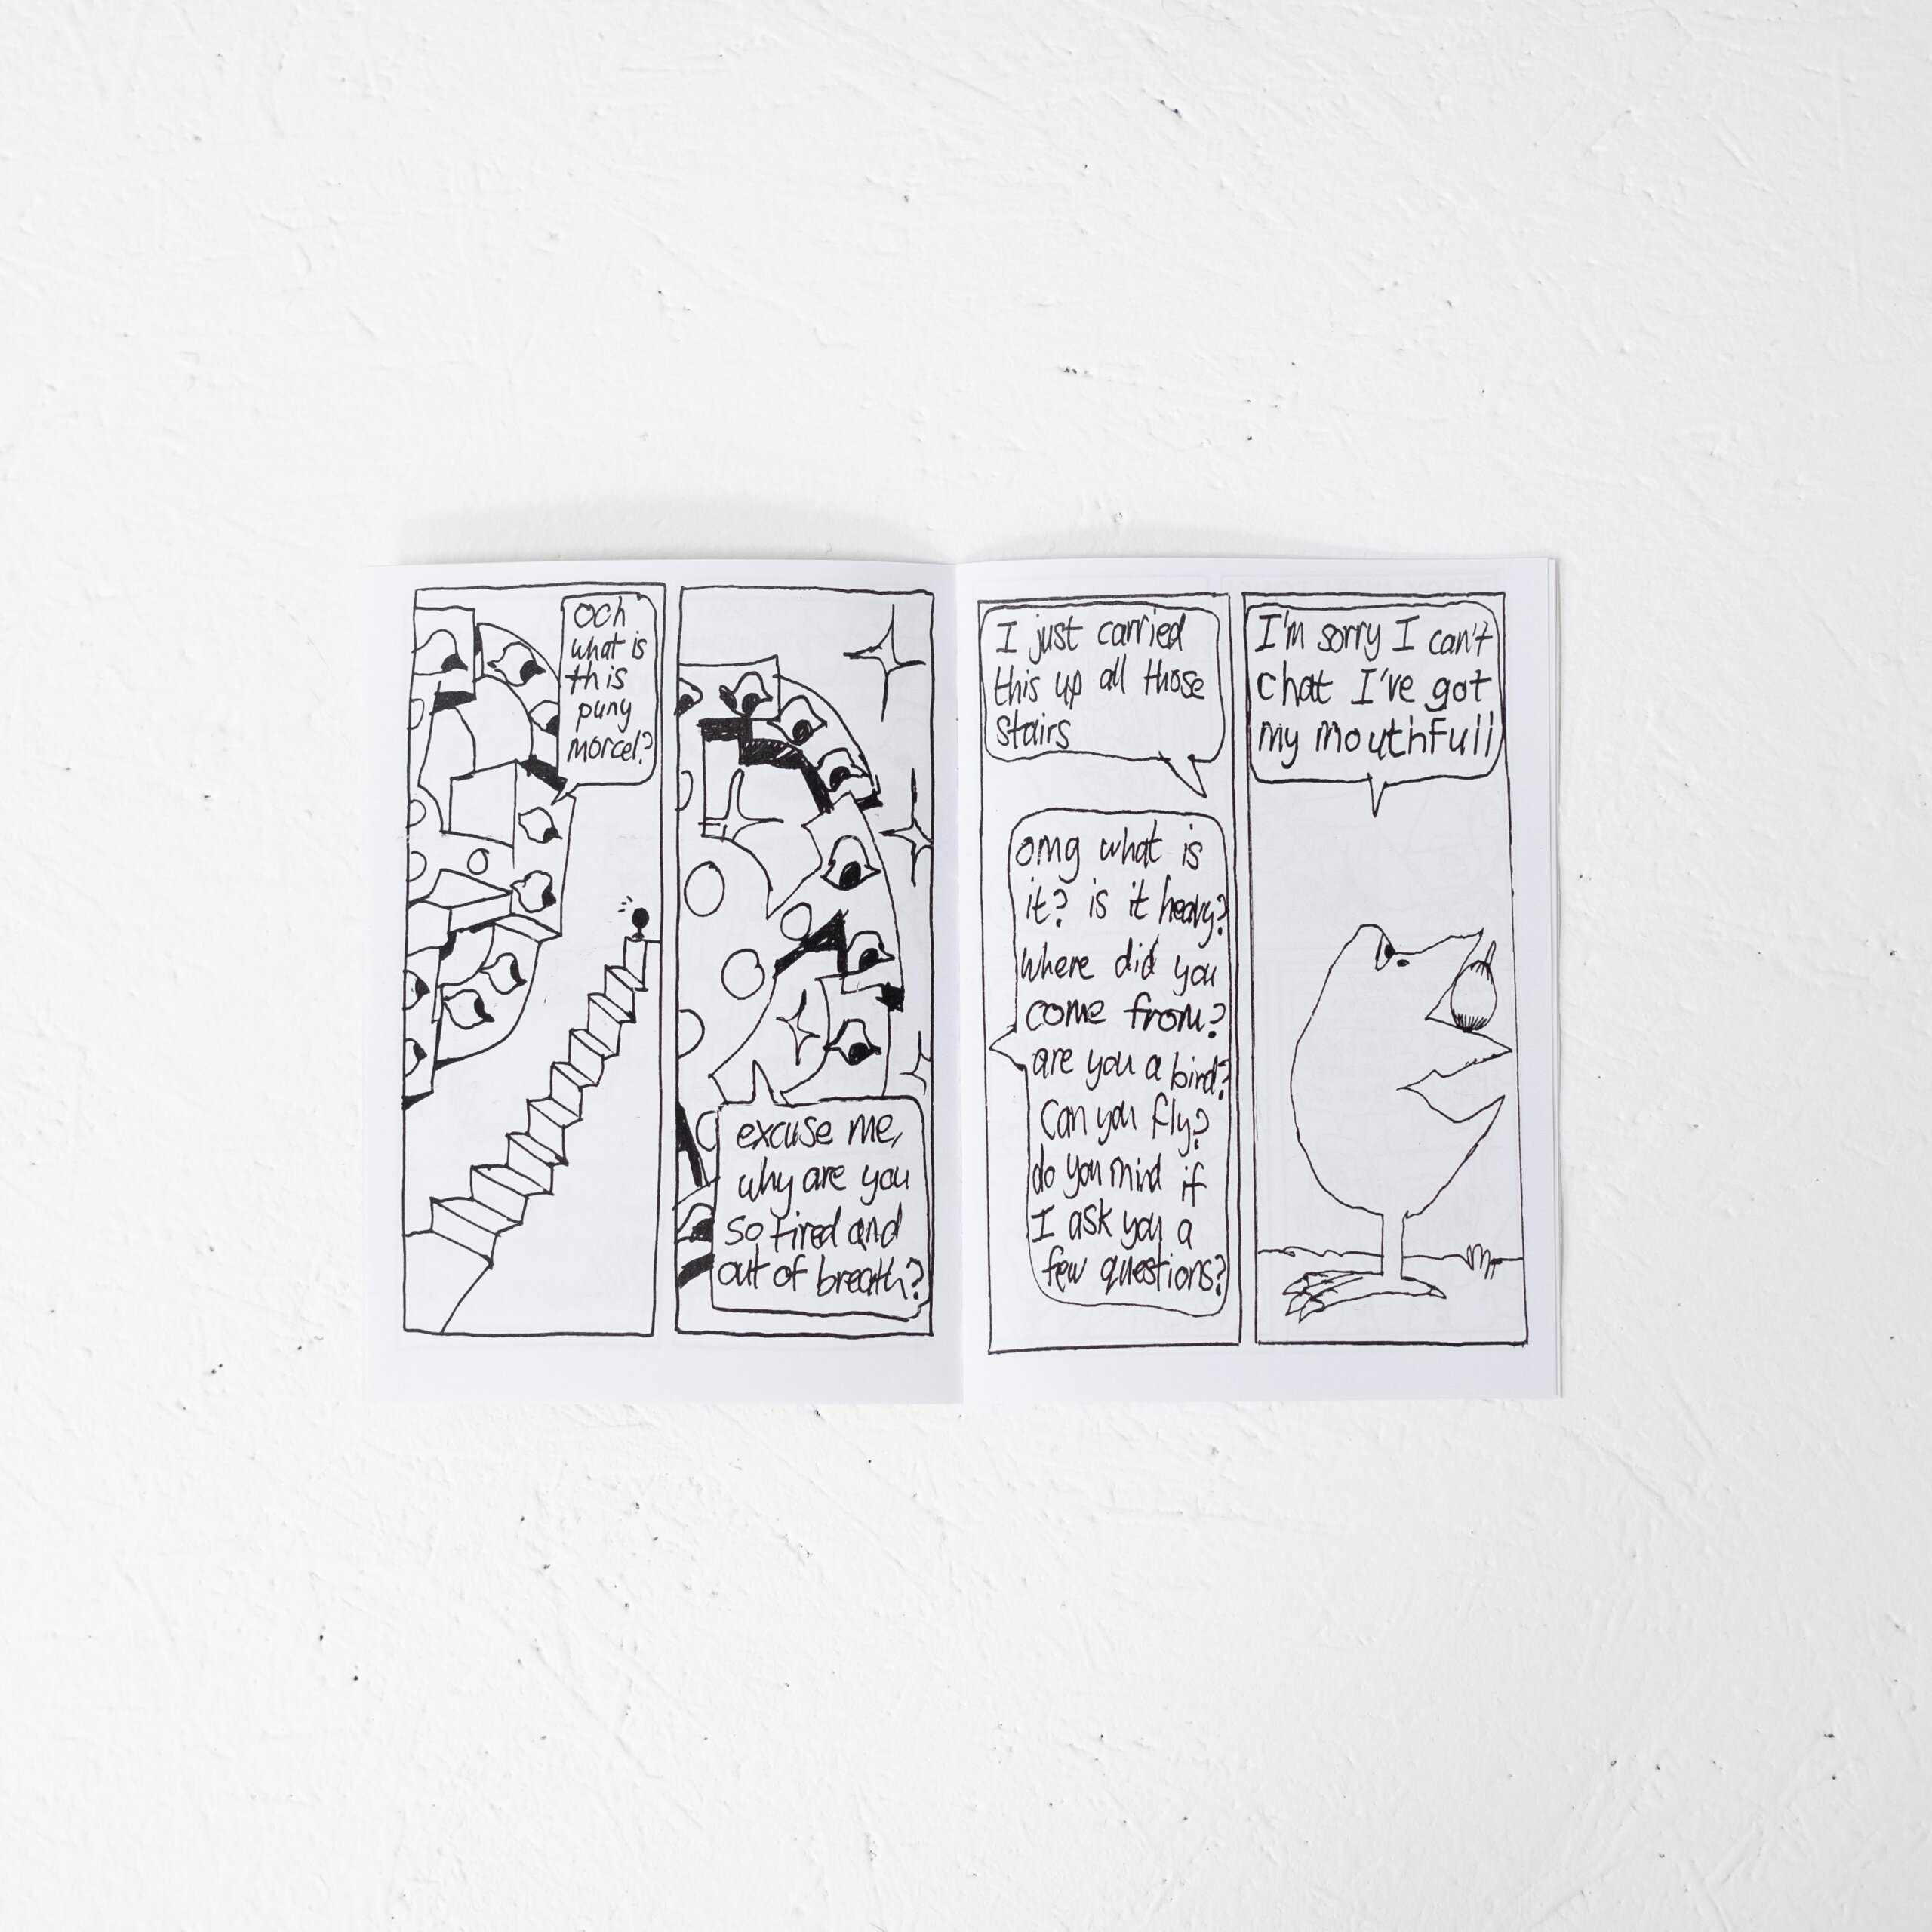 Och
what is
this
puny
morcel?
excuse me,
why are you
so tired and
out of breath?
I just carried
this up all those
stairs
omg what is
it? is it heavy?
where did you
come from?
are you a bird?
Can you fly?
do you mind if
I ask you a
few questions?
I'm sorry I can't
chat I've got
my mouthfull